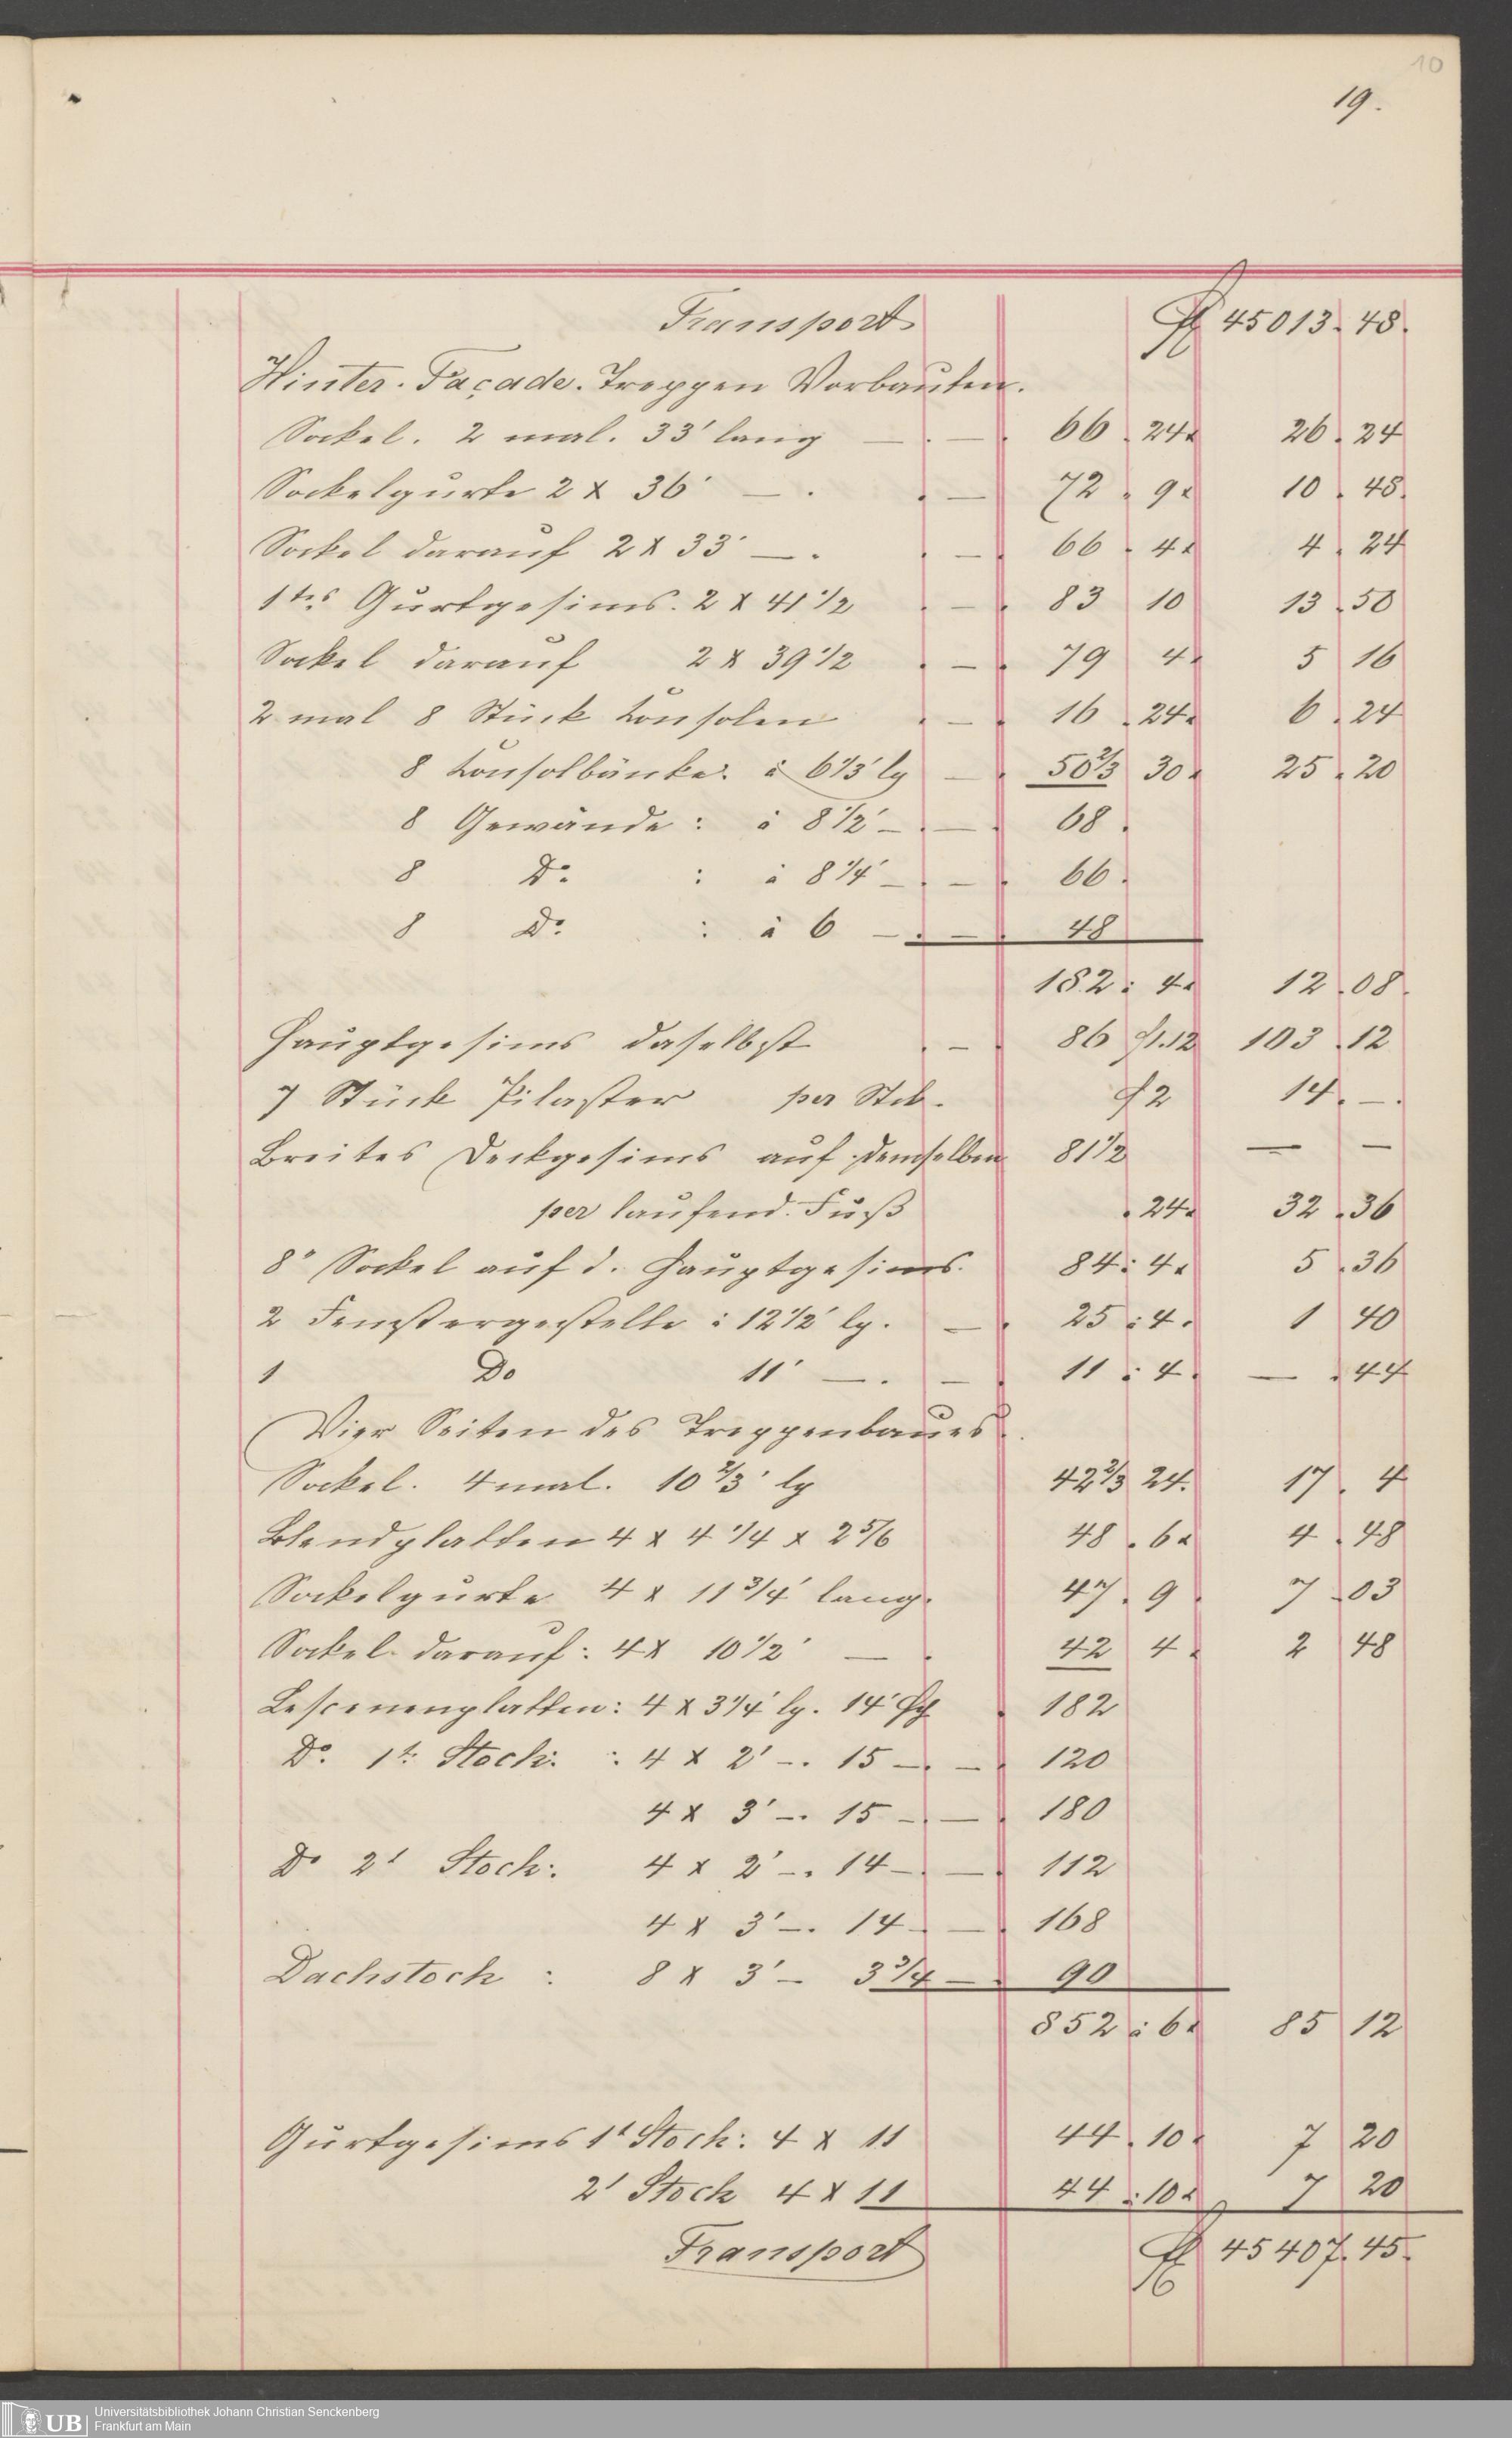 10
19.
Transport fl 45013. 48.
Hinter. Façade. Treppen Vorbauten.
Sockel. 2 mal. 33' lang — . — . 66 . 24x 26 . 24
Sockelgurte 2 x 36' — . . — 72 . 9x 10 . 48.
Sockel darauf 2 x 33' — . . — . 66 . 4x 4 . 24
1tes Gurtgesims. 2 x 41 1/2 . — . 83 10 13 . 50
Sockel darauf 2 x 39 1/2 . — . 79 4x 5 16
2 mal 8 Stück Consolen . — . 16 . 24x 6 . 24
8 Consolbänke. à 6 1/3' lg — . 50 2/3 30x 25 . 20
8 Gewände : à 8 1/2' — . — . 68 .
8 Do. : à 8 1/4' — . — . 66 .
8 Do. : à 6 — . — . 48
182 : 4x 12 . 08.
Hauptgesims daselbst . — . 86 f1.12 103 . 12
7 Stück Pilaster per Stck. f2 14 . — .
Breites Deckgesims auf demselben 81 1/2 — —
per laufend. Fuß . 24x 32 . 36
8" Sockel auf d. Hauptgesims. 84 : 4x 5 . 36
2 Fenstergestelle : 12 1/2' lg. — . 25 à 4 . 1 40
1 Do 11' — . — . 11 à 4 . — . 44
Vier Seiten des Treppenbaues.
Sockel. 4 mal. 10 2/3' lg 42 2/3 24. 17 . 4
Blendplatten 4 x 4 1/4 x 2 5/6 48 . 6x 4 . 48
Sockelgurte 4 x 11 3/4' lang. 47 . 9 . 7 . 03
Sockel darauf : 4 x 10 1/2' — . 42 4 . 2 48
Lescenenplatten : 4 x 3 1/4' lg. 14' . 182
Do. 1t. Stock. : 4 x 2' — . 15 — . — . 120
4 x 3' — . 15 — . — . 180
Do 2t Stock. 4 x 2' — . 14 — . — . 112
4 x 3' — . 14 — . — . 168
Dachstock : 8 x 3' — 3 3/4 — . 90
852 à 6x 85 12
Gurtgesims 1t Stock : 4 x 11 44 . 10x 7 20
2t Stock 4 x 11 44 : 10x 7 20
Transport fl 45407. 45.
UB
Universitätsbibliothek Johann Christian Senckenberg
Frankfurt am Main